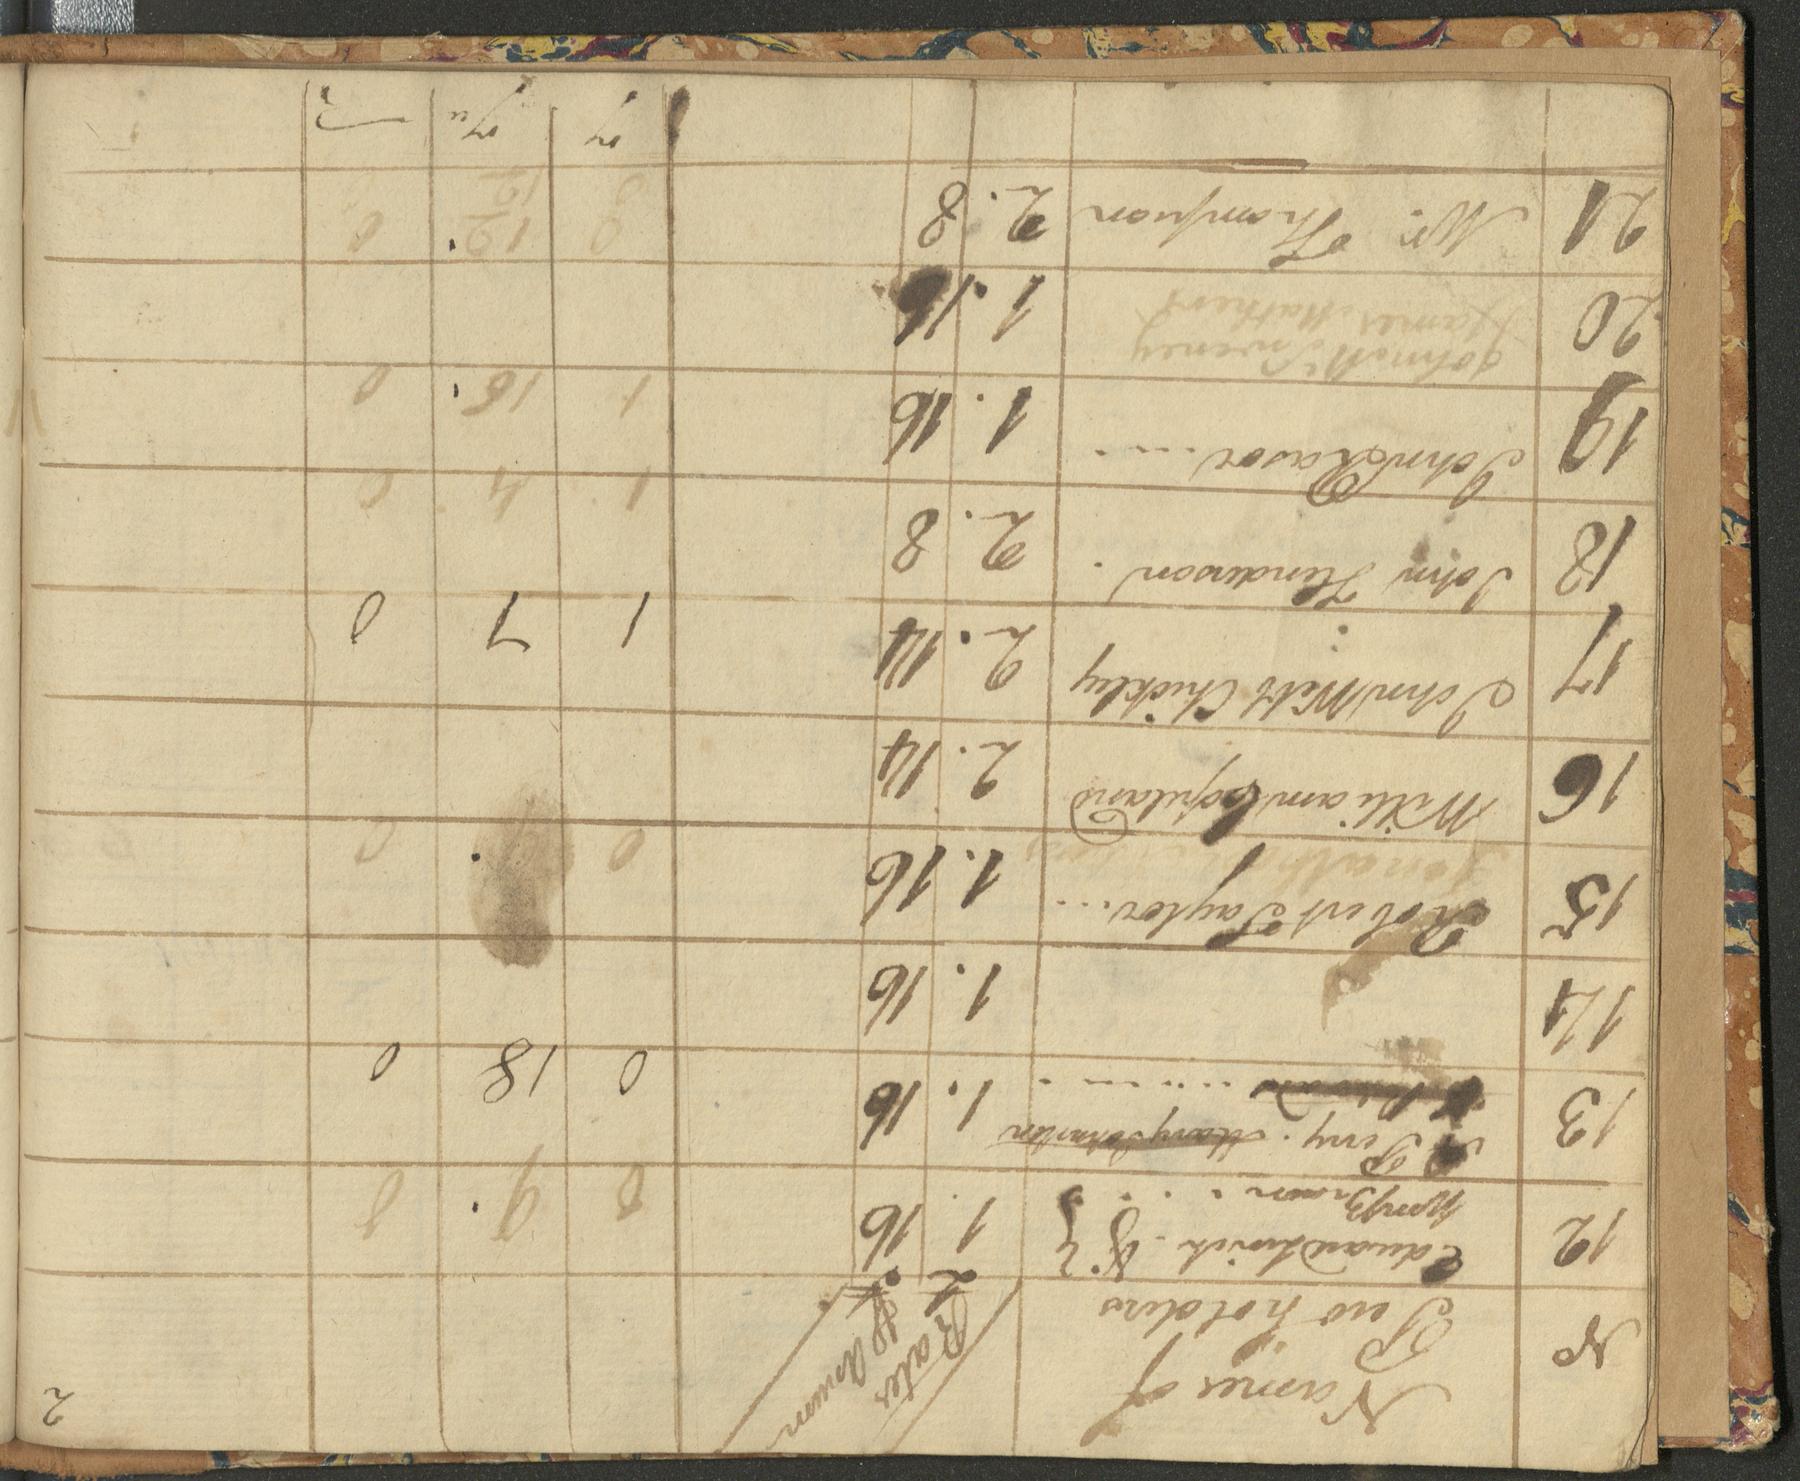 2
No Names of Pew holders Rates ₱ Annum
£ s
12 Edward Smith 1. 16 0 9. 0
Brown . . . .
13 Perry. 1. 16 0 18 0
14 1. 16
15 Robert Taylor... 1. 16 0 0
16 William Copeland 2. 14
17 John Witt Chickley 2. 14 1 7 0
18 John Henderson. 2. 8 1 4 0
19 John Rasor.... 1. 16 1 16 0
20 John McSweeney 1. 16
James Mathers
21 Mr. Thompson 2. 8 0 12. 0
0 12 0